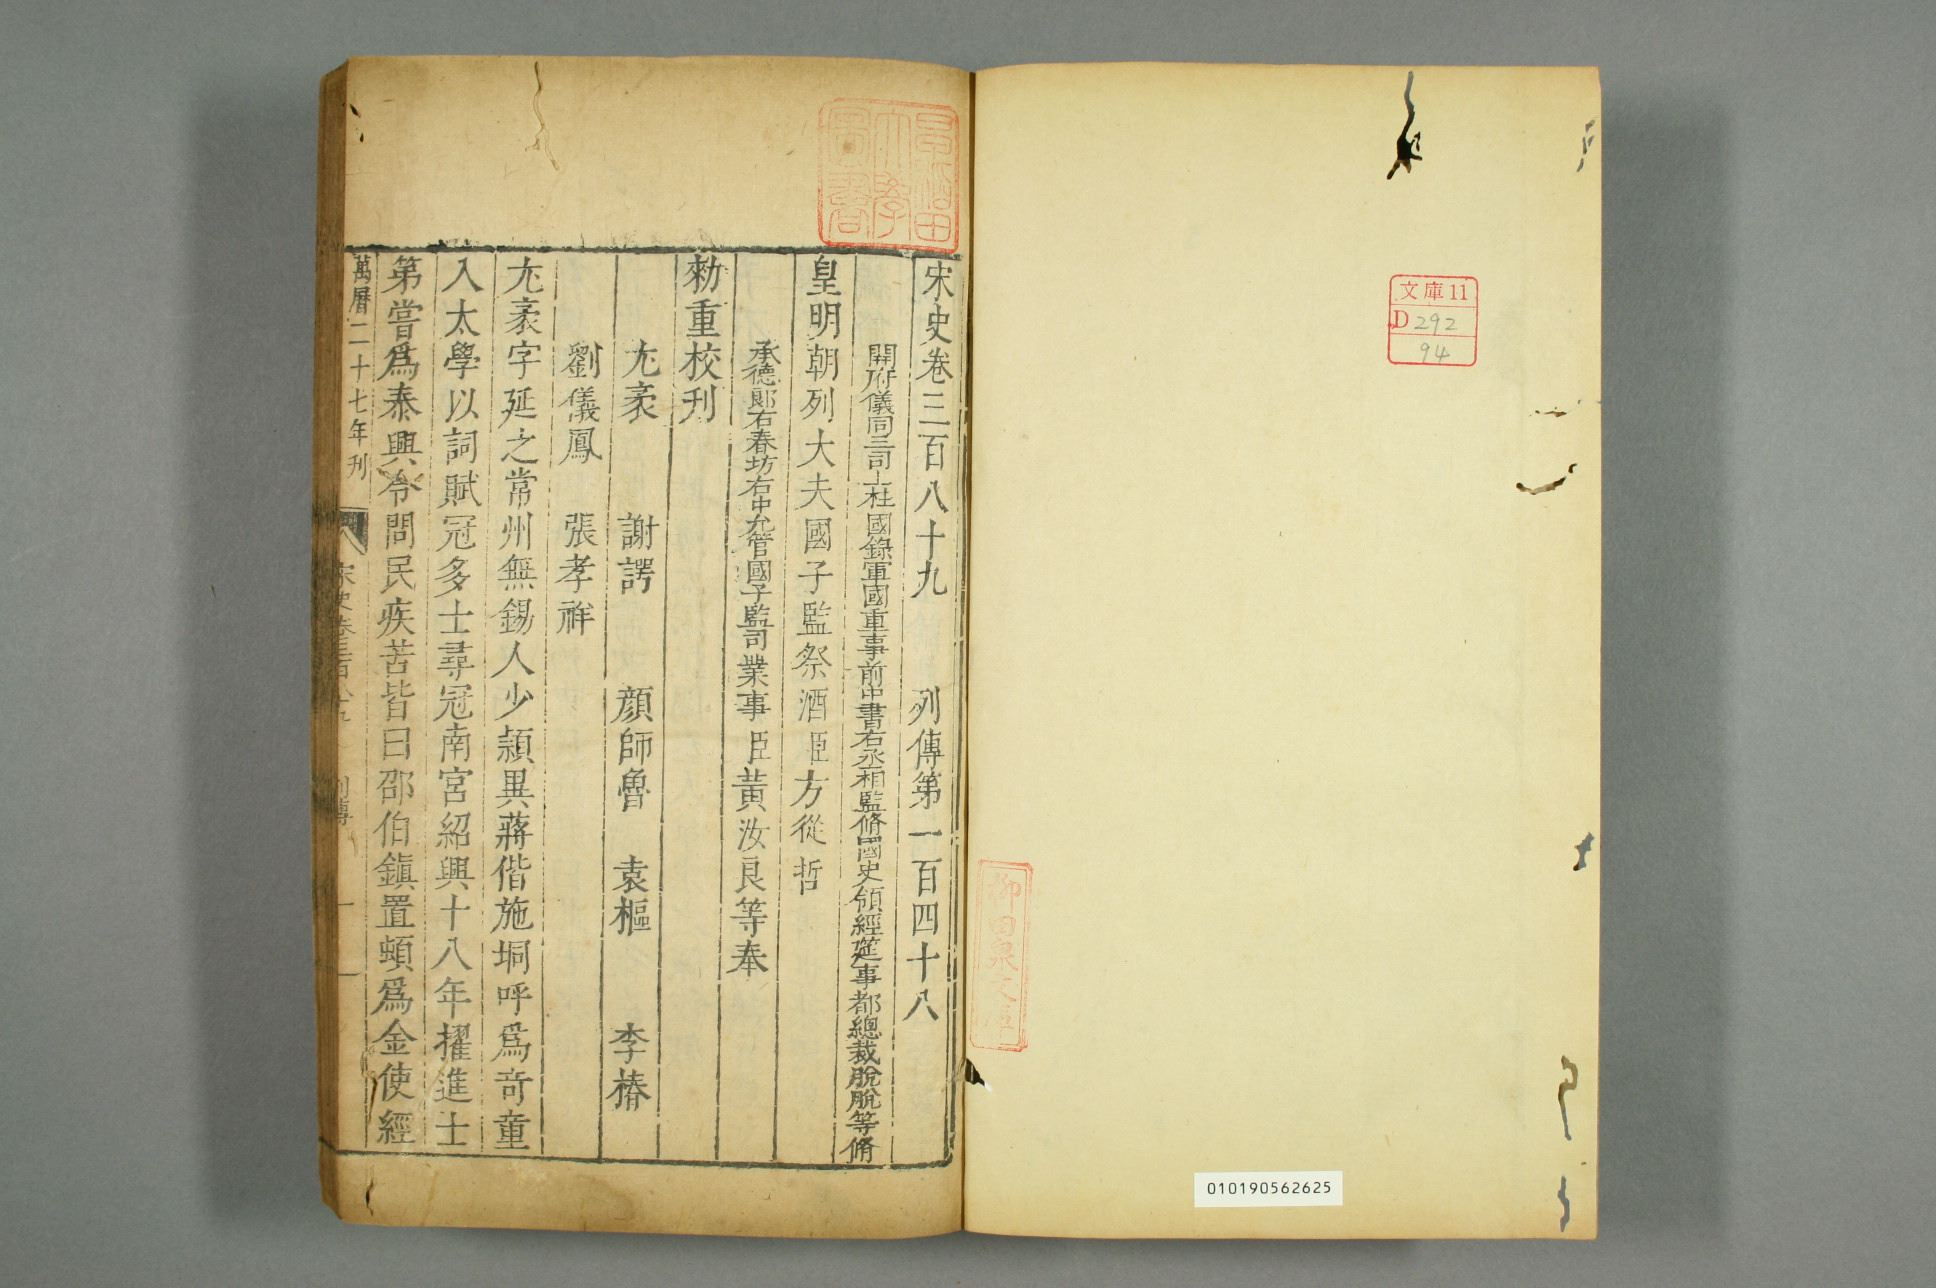 文庫11
D 292
94
柳田泉文庫
010190562625
早稲田大學圖書
宋史卷三百八十九 列傳第一百四十八
開府儀同三司上柱國錄軍國重事前中書右丞相監脩國史領經筵事都總裁脫脫等脩
皇明朝列大夫國子監祭酒臣方從哲
承德郎右春坊右中允管國子監司業事臣黃汝良等奉
勑重校刊
尤袤 謝諤 顔師魯 袁樞 李椿
劉儀鳳 張孝祥
尤袤字延之常州無錫人少頴異蔣偕施坰呼爲奇童
入太學以詞賦冠多士尋冠南宮紹興十八年擢進士
第嘗爲泰興令問民疾苦皆曰邵伯鎮置頓爲金使經
萬曆二十七年刊 宋史卷三百八十九 列傳 一